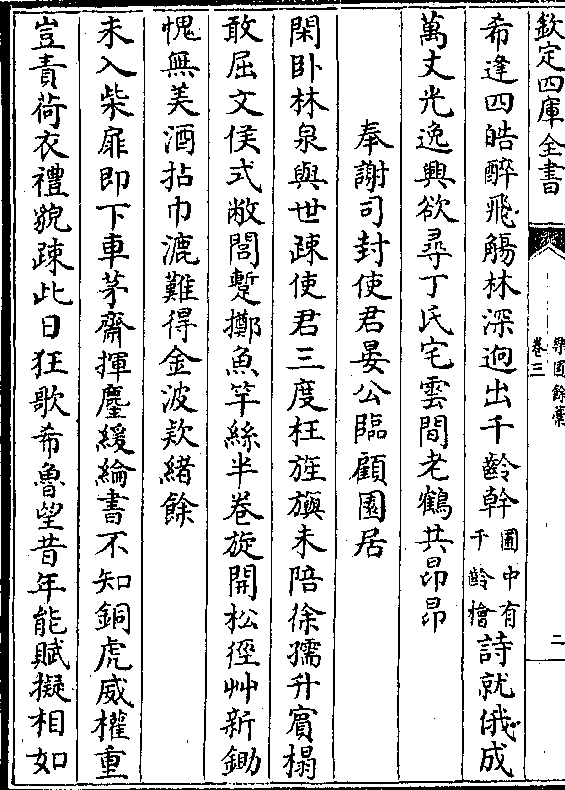 欽定四庫全書
樂圃餘藁
卷三
二
希逢四皓醉飛觴林深迥出千齡幹圃中有千齡檜詩就俄成
萬丈光逸興欲尋丁氏宅雲間老鶴共昂昂
奉謝司封使君晏公臨顧園居
閑卧林泉與世疎使君三度枉旌旟未陪徐孺升賔榻
敢屈文侯式敝閭蹔擲魚竿絲半卷旋開松徑艸新鋤
愧無美酒拈巾漉難得金波欵緒餘
未入柴扉即下車茅齋揮麈緩綸書不知銅虎威權重
豈責荷衣禮貌疎此日狂歌希魯望昔年能賦擬相如